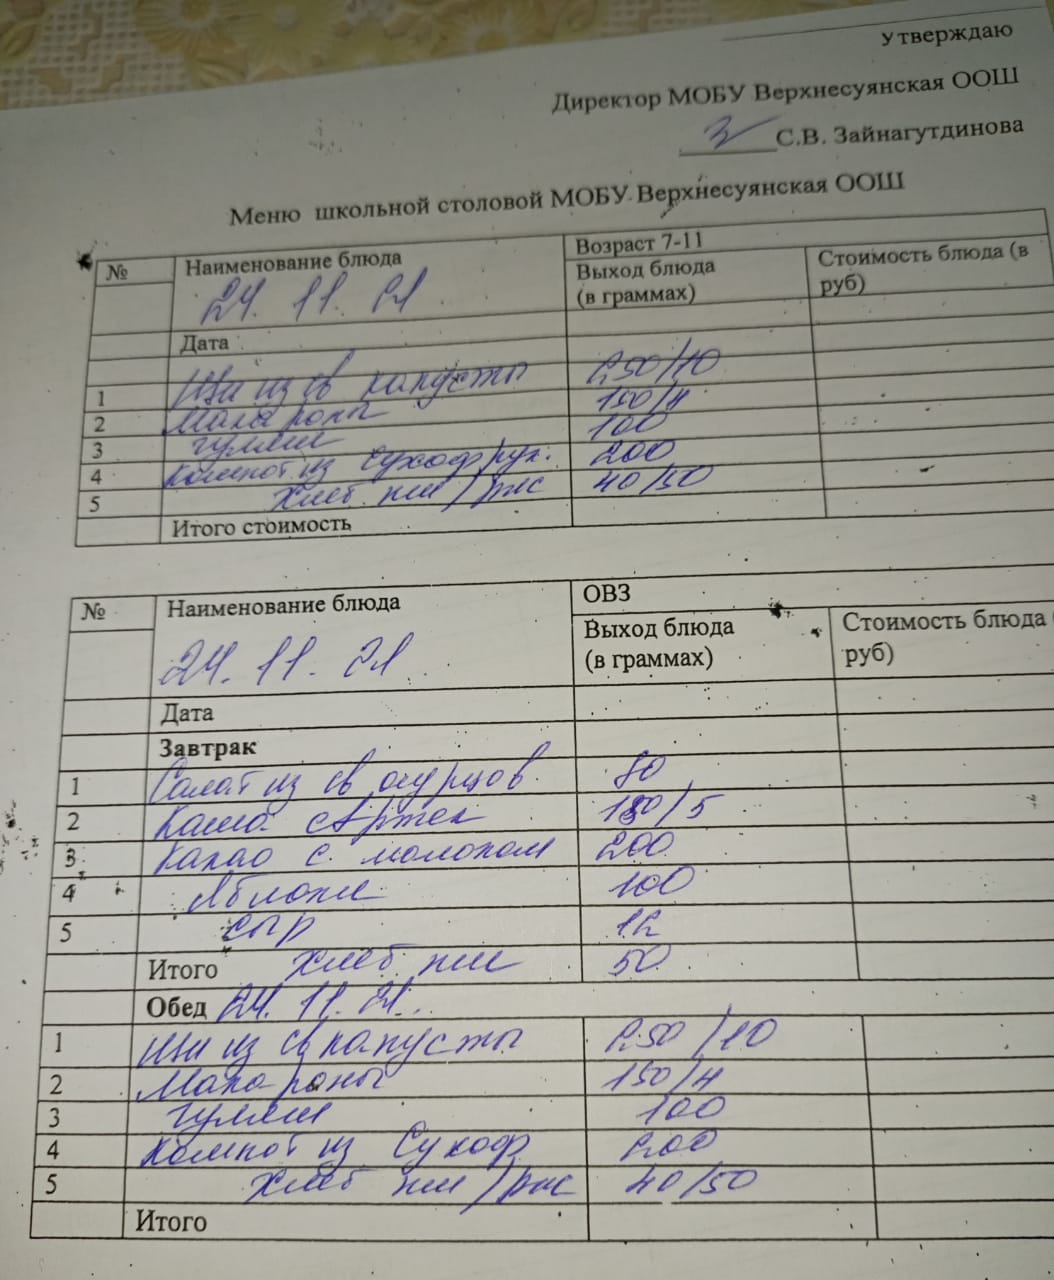 Утверждаю
Директор МОБУ Верхнесуянская ООШ
С.В. Зайнагутдинова
Меню школьной столовой МОБУ Верхнесуянская ООШ
№ Наименование блюда Возраст 7-11
Выход блюда (в граммах) Стоимость блюда (в руб)
24. 11. 21
Дата
1 Щи из св капусты 250/10
2 Макароны 150/4
3 гуляш 100
4 Компот из сухофрук. 200
5 Хлеб пш/рж 40/50
Итого стоимость
№ Наименование блюда ОВЗ
Выход блюда (в граммах) Стоимость блюда руб)
24. 11. 21
Дата
Завтрак
1 Салат из св огурцов 80
2 Каша Артек 180/5
3 Какао с молоком 200
4 Яблоки 100
5 Сыр 12
Итого Хлеб пш 50
Обед 24. 11. 21.
1 Щи из св капусты 250/10
2 Макароны 150/4
3 гуляш 100
4 Компот из Сухоф 200
5 Хлеб пш/рж 40/50
Итого